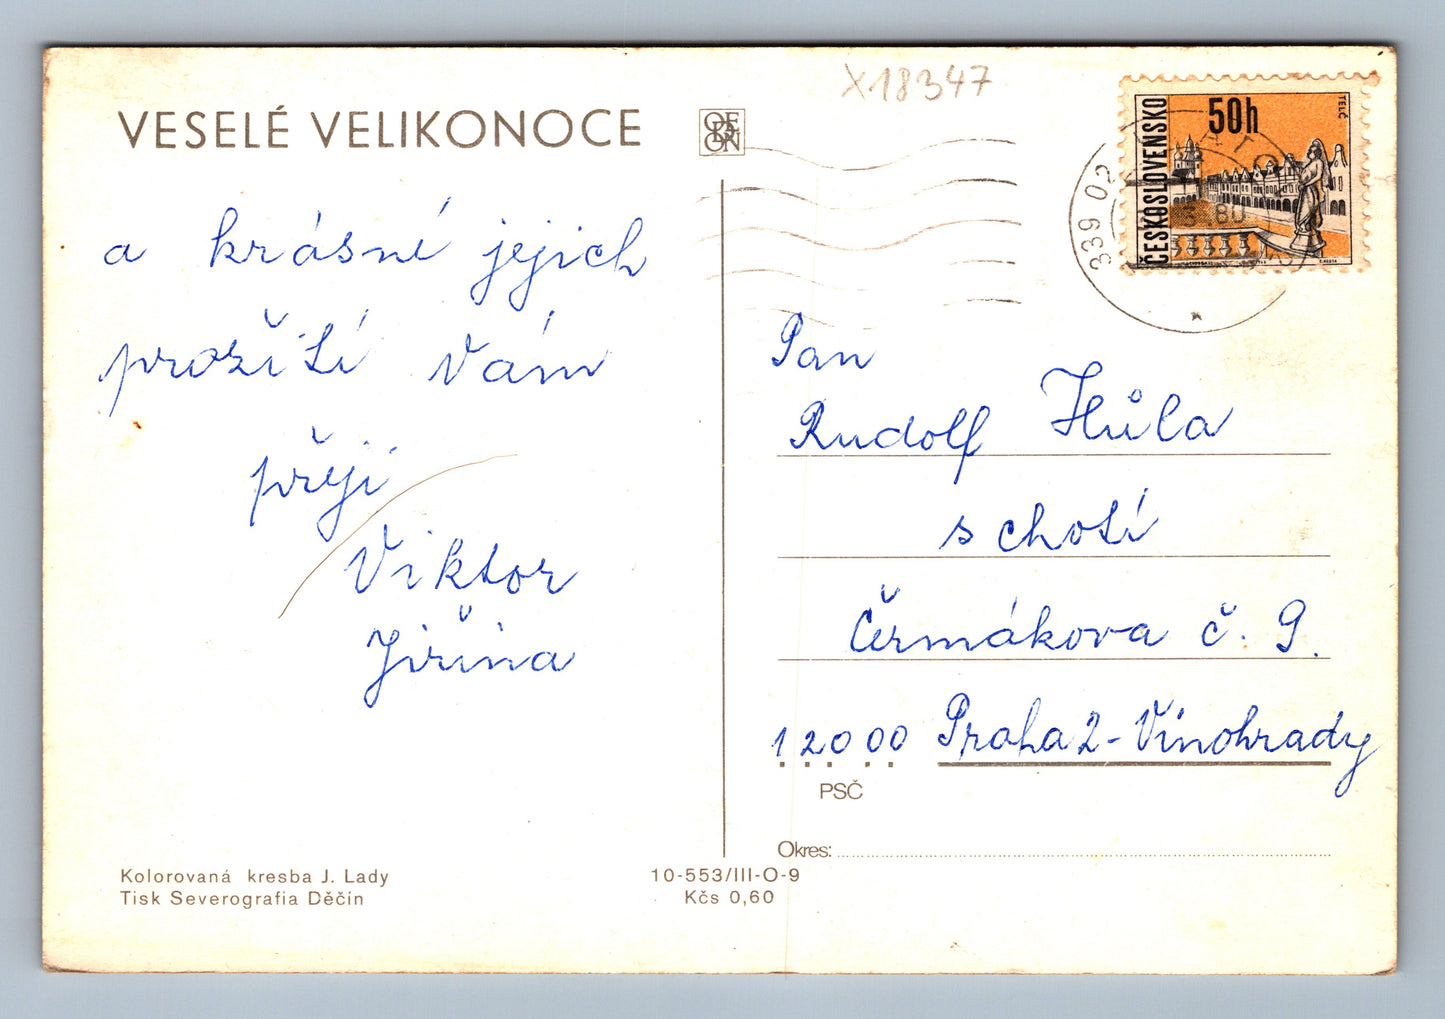 X18347
VESELÉ VELIKONOCE
ORBIS
a krásné jejich
prožití Vám
přeji
Viktor
Jiřina
Kolorovaná kresba J. Lady
Tisk Severografia Děčín
10-553/III-O-9
Kčs 0,60
ČESKOSLOVENSKO
50h
TELČ
339 02
80
Pan
Rudolf Hůla
s chotí
Čermákova č. 9.
12000 Praha 2 - Vinohrady
PSČ
Okres: